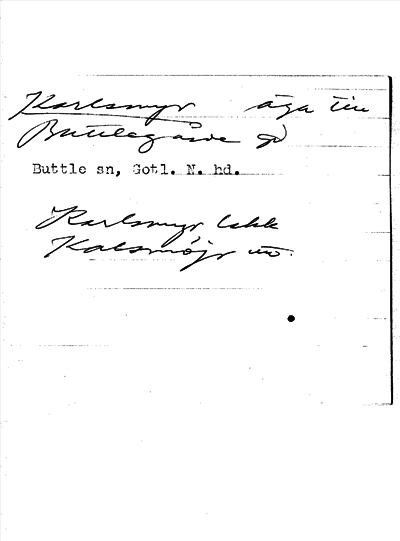 Karlsmyr äga till
Buttlegårde gd
Buttle sn, Gotl. N. hd.
Karlsmyr lekk
Kalsmöjr uo.